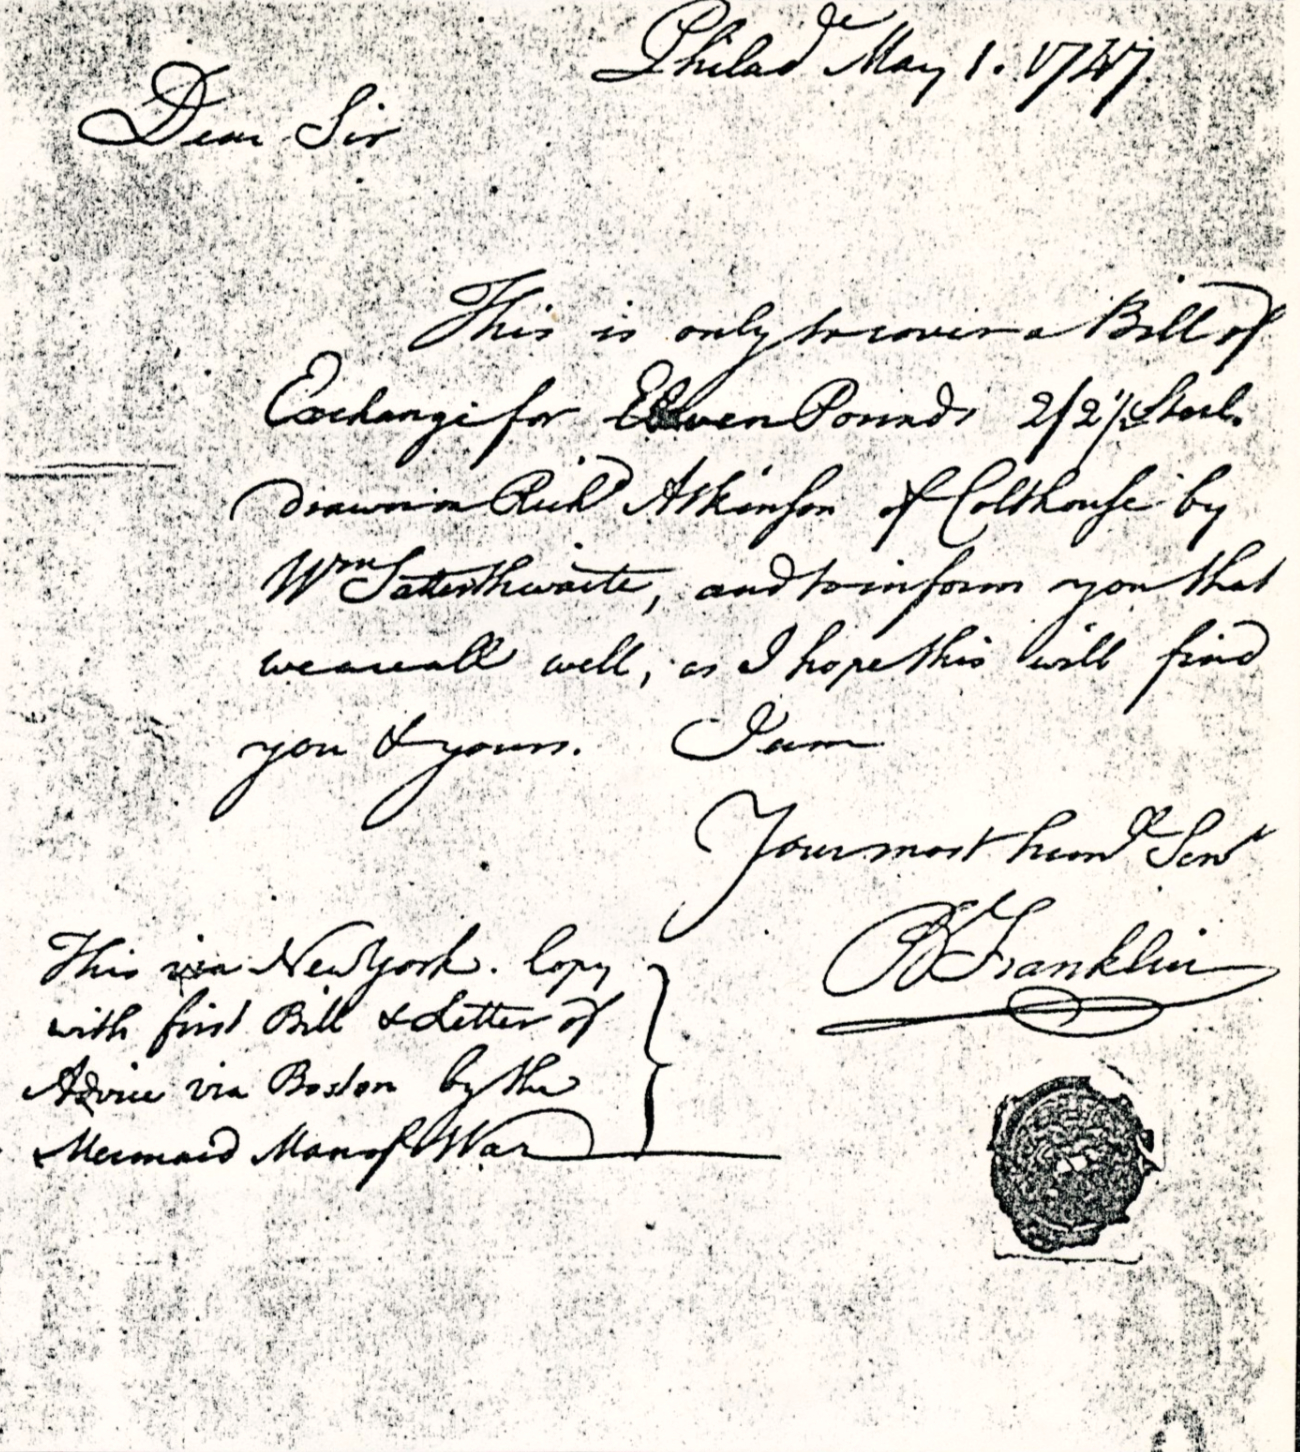 Philad^e May 1. 1747.
Dear Sir
This is only to cover a Bill of
Exchange for Eleven Pounds 2/2½ Sterl.
drawn on Rich^d Atkinson of Colthouse by
W^m Satterthwaite, and to inform you that
we are all well, as I hope this will find
you & yours. I am
Your most hum^l Serv^t
B Franklin
This via New York. Copy
with first Bill & Letter of
Advice via Boston by the
Mermaid Man of War